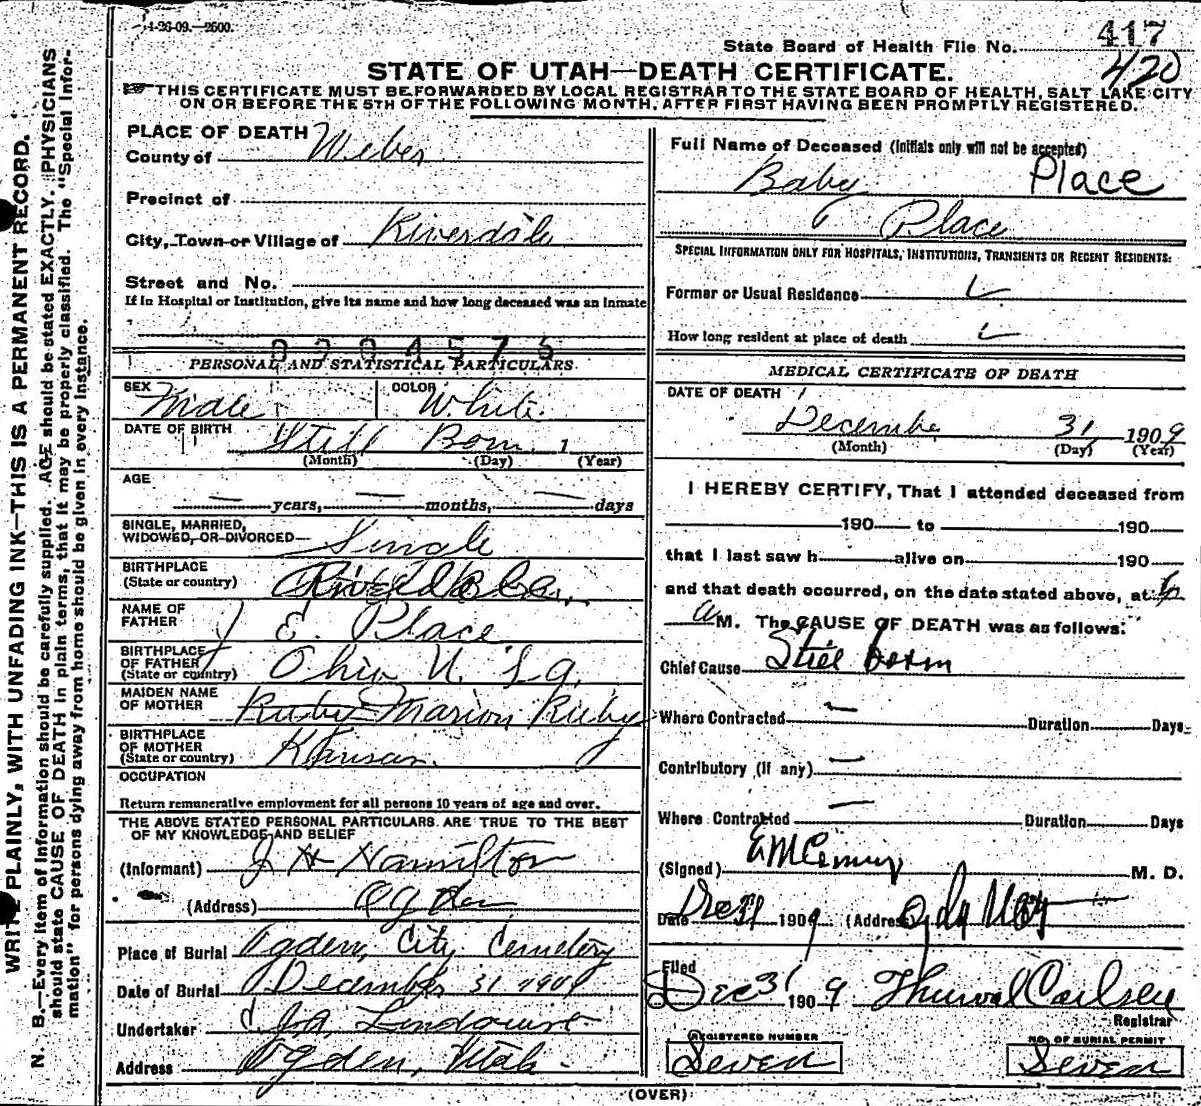 1-26-09.—2500.
State Board of Health File No. 417
420
STATE OF UTAH—DEATH CERTIFICATE.
THIS CERTIFICATE MUST BE FORWARDED BY LOCAL REGISTRAR TO THE STATE BOARD OF HEALTH, SALT LAKE CITY
ON OR BEFORE THE 5TH OF THE FOLLOWING MONTH, AFTER FIRST HAVING BEEN PROMPTLY REGISTERED.
WRITE PLAINLY, WITH UNFADING INK—THIS IS A PERMANENT RECORD.
N. B.—Every item of information should be carefully supplied. AGE should be stated EXACTLY. PHYSICIANS
should state CAUSE OF DEATH in plain terms, that it may be properly classified. The "Special Infor-
mation" for persons dying away from home should be given in every instance.
PLACE OF DEATH
County of Weber
Precinct of
City, Town or Village of Riverdale
Street and No.
If in Hospital or Institution, give its name and how long deceased was an inmate
PERSONAL AND STATISTICAL PARTICULARS
SEX Male
COLOR White
DATE OF BIRTH Still Born 1
(Month) (Day) (Year)
AGE
— years, — months, — days
SINGLE, MARRIED,
WIDOWED, OR DIVORCED— Single
BIRTHPLACE
(State or country) Riverdale
NAME OF
FATHER J E. Place
BIRTHPLACE
OF FATHER
(State or country) Ohio U.
MAIDEN NAME
OF MOTHER Ruby Marion Ruby
BIRTHPLACE
OF MOTHER
(State or country) Kansas.
OCCUPATION
Return remunerative employment for all persons 10 years of age and over.
THE ABOVE STATED PERSONAL PARTICULARS ARE TRUE TO THE BEST
OF MY KNOWLEDGE AND BELIEF
(Informant) J H Hamilton
(Address) Ogden
Place of Burial Ogden, City Cemetery
Date of Burial December 31 1909
Undertaker J.A. Lindquist
Address Ogden, Utah.
Full Name of Deceased (Initials only will not be accepted)
Baby Place
Place
SPECIAL INFORMATION ONLY FOR HOSPITALS, INSTITUTIONS, TRANSIENTS OR RECENT RESIDENTS:
Former or Usual Residence
How long resident at place of death
MEDICAL CERTIFICATE OF DEATH
DATE OF DEATH
December 31 1909
(Month) (Day) (Year)
I HEREBY CERTIFY, That I attended deceased from
190 to 190
that I last saw h alive on 190
and that death occurred, on the date stated above, at 6
a M. The CAUSE OF DEATH was as follows:
Chief Cause Still born
Where Contracted — Duration Days
Contributory (if any) —
Where Contracted — Duration Days
(Signed) M. D.
Date Dec 31 1909 (Address)
Filed
Dec 31 1909 Thurval Carlsen
Registrar
REGISTERED NUMBER
Seven
NO. OF BURIAL PERMIT
Seven
(OVER)